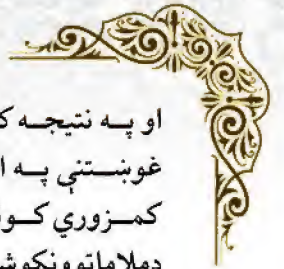 او په نتیجه ک
غوښتنې په ا
کمزوري کو
دملاماتوونکوش